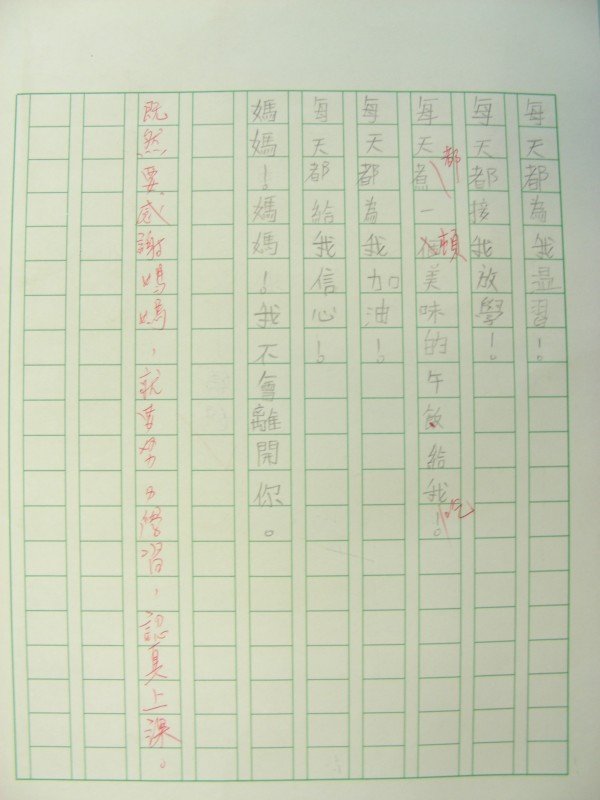 每天都為我温習！
每天都接我放學！
每天都煮一頓美味的午飯給我吃！
每天都為我加油！
每天都給我信心！
媽媽！媽媽！我不會離開你。
既然要感謝媽媽，就要努力學習，認真上課。